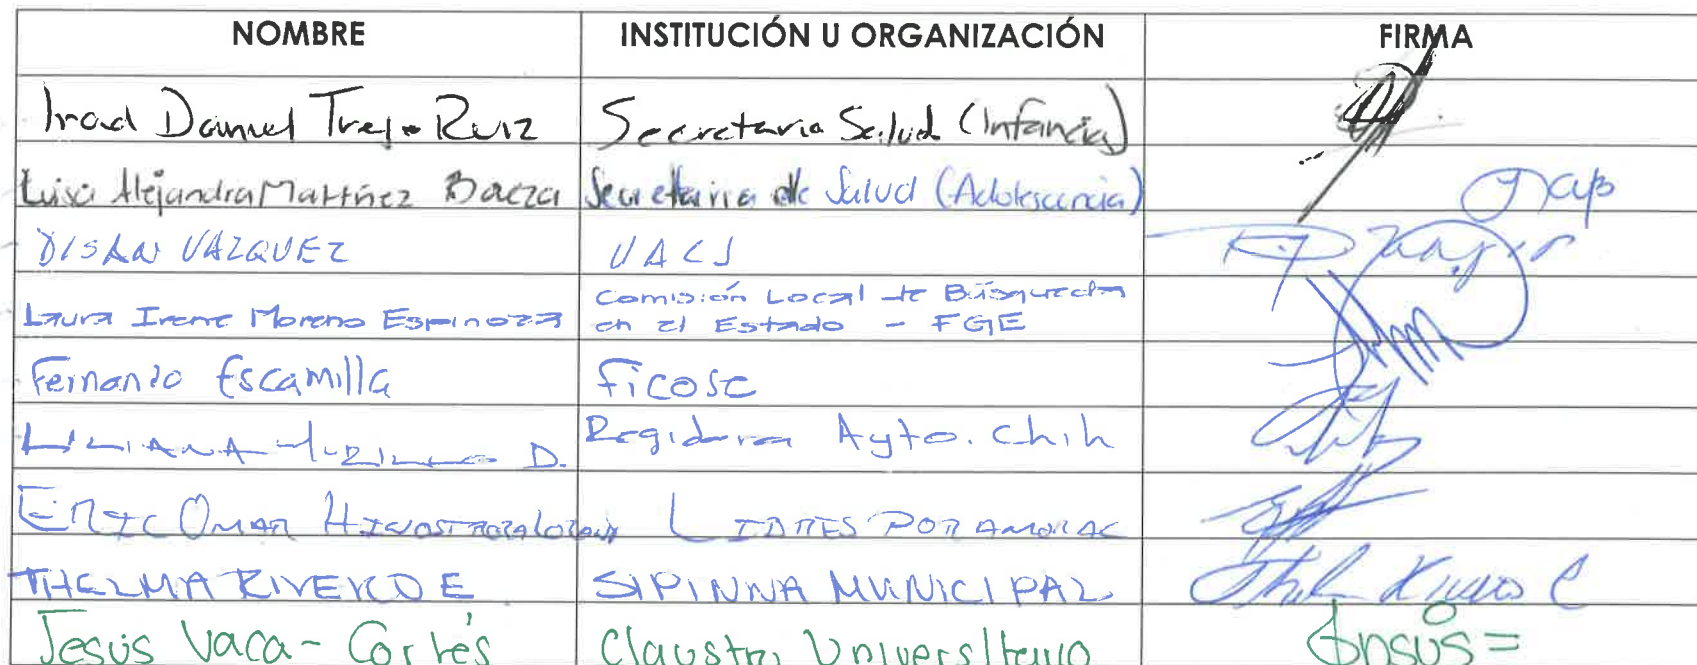 NOMBRE INSTITUCIÓN U ORGANIZACIÓN FIRMA
Irad Daniel Trejo Ruiz Secretaria Salud (Infancia)
Luisa Alejandra Martínez Baeza Secretaria de Salud (Adolescencia)
VÁZQUEZ UACJ
Laura Irene Moreno Espinoza Comisión Local de Búsqueda
en el Estado - FGE
Fernando Escamilla Ficosec
LILIANA D. Regidora Ayto. Chih
ERIC OMAR LIBRES POR AMOR AC
THELMA SIPINNA MUNICIPAL
Jesús Vaca-Cortés Claustro Universitario